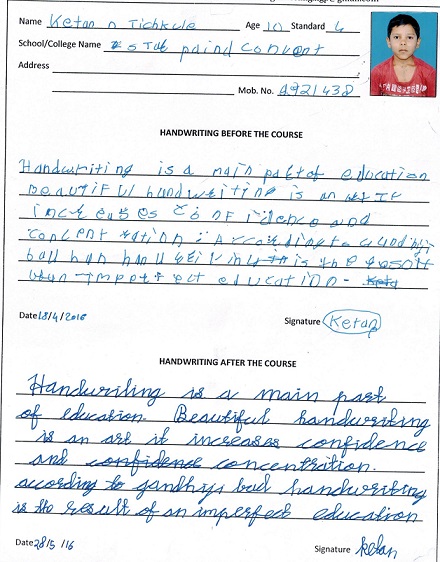 Name Ketan n Tichkule Age 10 Standard 4
School/College Name 5 Tal paind Convent
Address
Mob. No.
HANDWRITING BEFORE THE COURSE
Handwriting is a main part of education
beautiful handwriting is an
increases confidence and
concentration : According to
bad han
education -
Date 18/4/2016
Signature Ketan
HANDWRITING AFTER THE COURSE
Handwriting is a main part
of education. Beautiful handwriting
is an art it increases confidence
and confidence concentration.
according to gandhiji bad handwriting
is the result of an imperfect education
Date 28/5 /16
Signature ketan